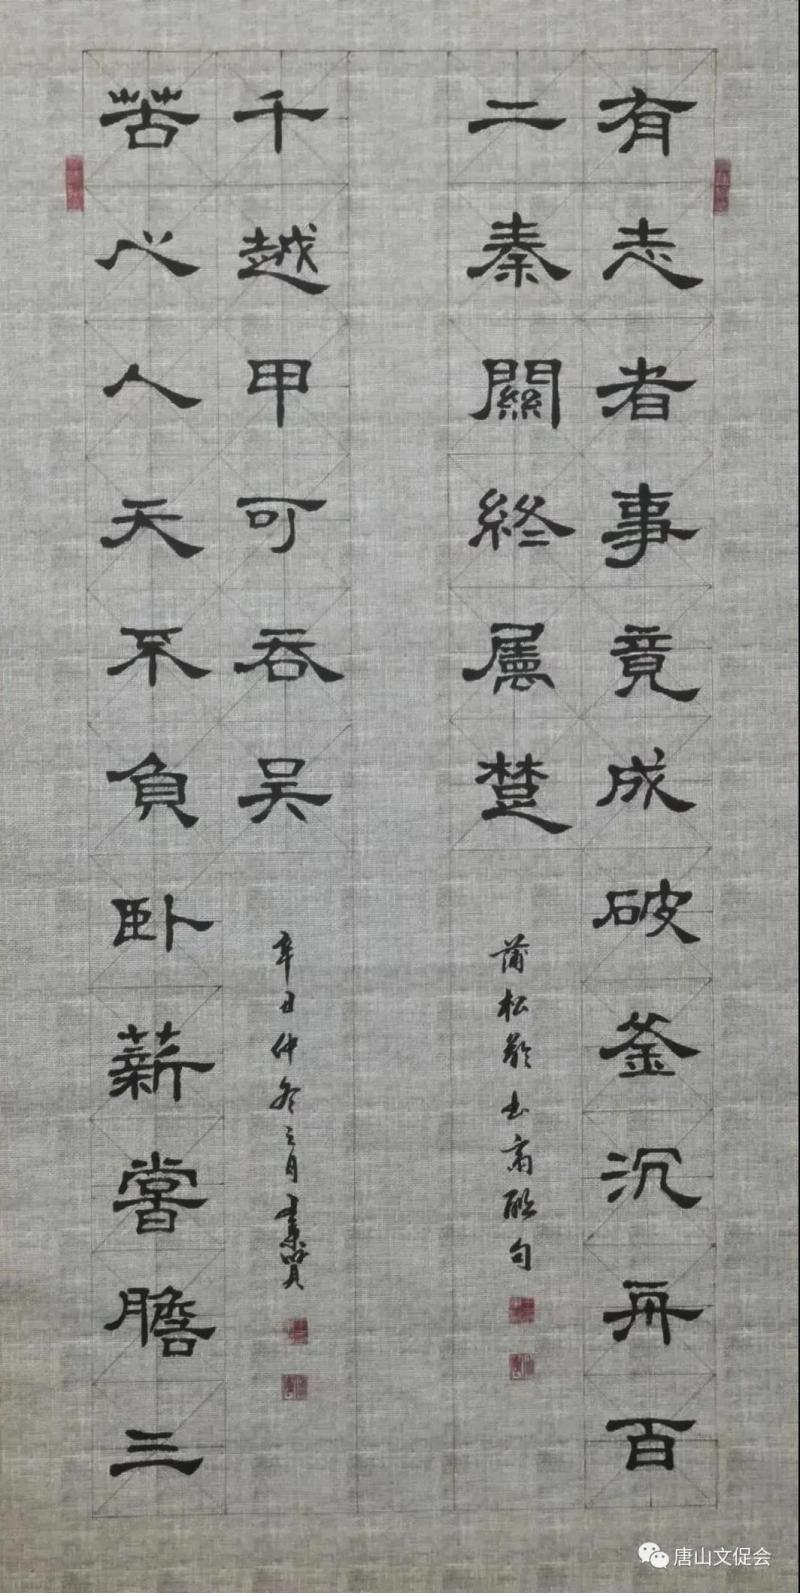 有志者事竟成破釜沉舟百
二秦關終屬楚
蒲松龄书斋联句
苦心人天不負卧薪嘗膽三
千越甲可吞吳
辛丑仲冬之月
唐山文促会